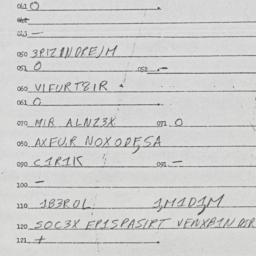 041 O
043 —
050 3PIZINOPE/M
051 O 052 .-
060 VIFURT8IR
061 O
070 MIR ALNZ3X 071 O
080 AXFUR NOXODESA
090 C1R1K 091 —
100 —
110 1B3ROL 1M1D1M
120 SOC3X EP1SPASIPT VENXP1N
121 +